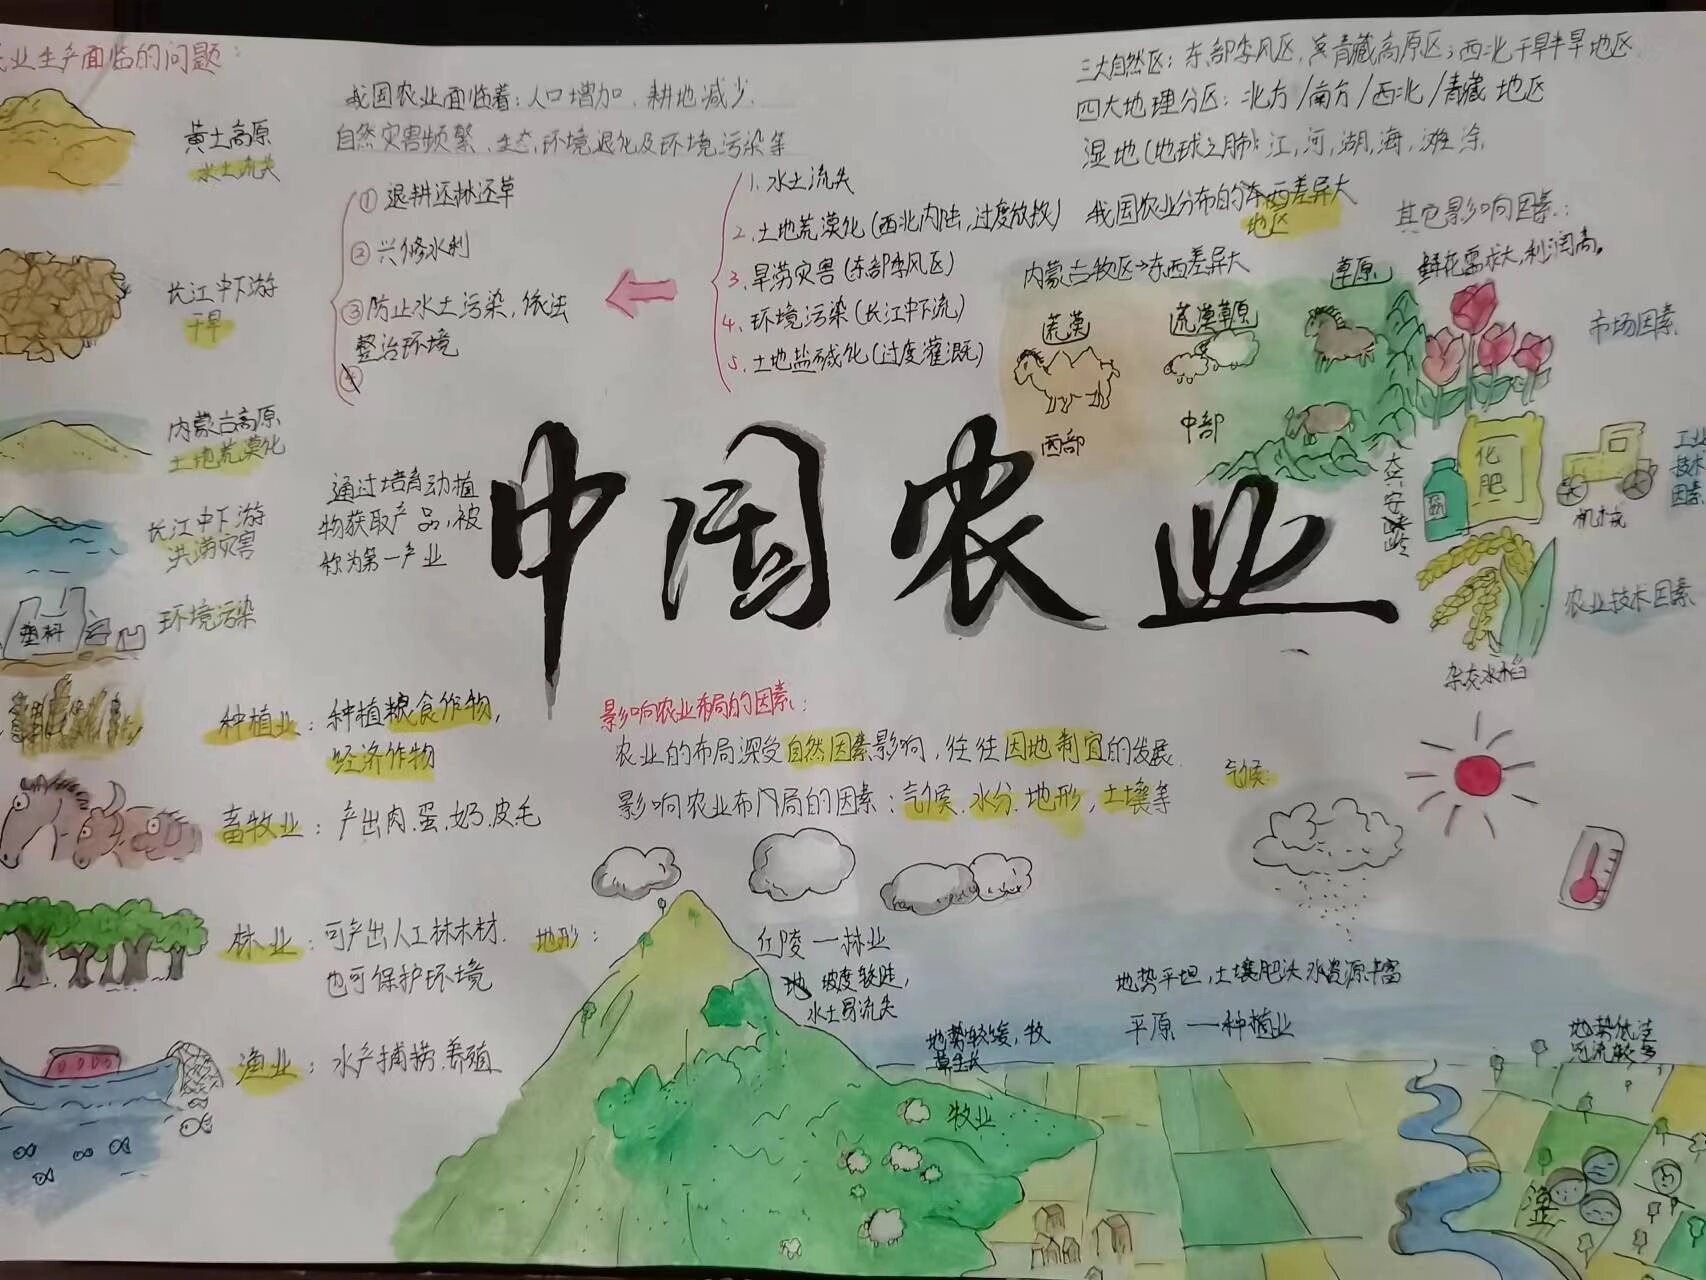 业生产面临的问题：
黄土高原
水土流失
长江中下游
干旱
内蒙古高原
土地荒漠化
长江中下游
洪涝灾害
塑料
环境污染
我国农业面临着：人口增加、耕地减少、
自然灾害频繁、生态,环境退化及环境污染等
① 退耕还林还草
② 兴修水利
③ 防止水土污染，依法
整治环境
1. 水土流失
2. 土地荒漠化(西北内陆，过度放牧)
3. 旱涝灾害(东部季风区)
4. 环境污染(长江中下流)
5. 土地盐碱化(过度灌溉)
三大自然区：东部季风区，青藏高原区；西北干旱半旱地区
四大地理分区：北方/南方/西北/青藏 地区
湿地(地球之肺)：江，河，湖，海，滩涂
我国农业分布的东西差异大
地区
内蒙古牧区→东西差异大
荒漠
荒漠草原
草原
西部
中部
大兴安岭
其它影响因素：
鲜花需求大，利润高。
市场因素
化肥
机械
工业
技术
因素
农业技术因素
杂交水稻
通过培育动植
物获取产品，被
称为第一产业
中国农业
种植业：种植粮食作物，
经济作物
畜牧业：产出肉、蛋、奶、皮毛
林业：可产出人工林木材、
也可保护环境
渔业：水产捕捞、养殖
影响农业布局的因素：
农业的布局深受自然因素影响，往往因地制宜的发展
影响农业布局的因素：气候、水分、地形，土壤等
气候：
地形：
丘陵—林业
坡度较陡，
水土易流失
地势较缓，牧
草生长
牧业
地势平坦，土壤肥沃 水资源丰富
平原 — 种植业
地势低洼
河流较多
渔业